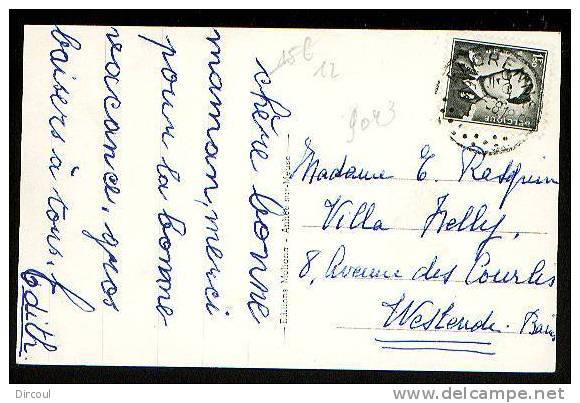 chère bonne
maman, merci
pour la bonne
vacance, gros
baisers à tous.
Edith.
15€
12
9043
1,50
BELGIQUE
Madame E. Rasquin
Villa Nelly,
8, Avenue des Courlis
Westende. Bains
Dircoul
www.delcampe.net